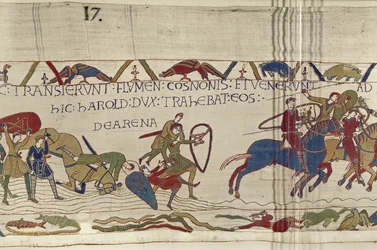 17.
C: TRANSIERVNT: FLVMEN: COSNONIS: ET VENERVNT AD
HIC: HAROLD: DVX: TRAHEBAT: EOS:
DE ARENA